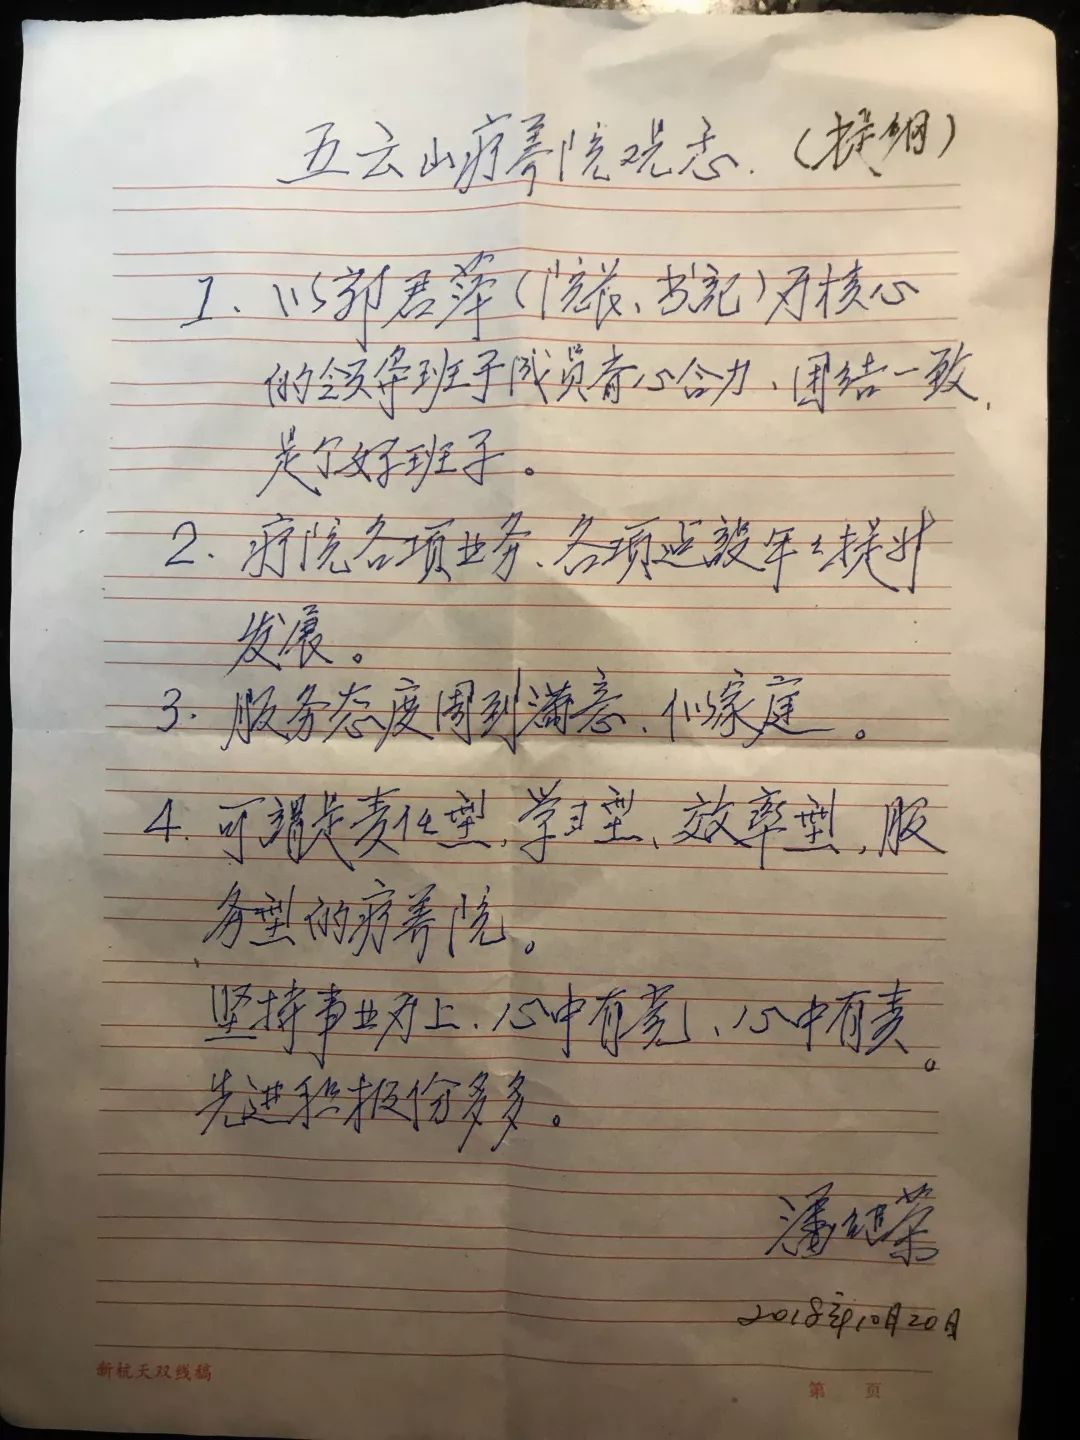 五云山疗养院观感.(提纲)
1、以郭君萍(院长、书记)为核心
的领导班子成员齐心合力、团结一致,
是个好班子。
2.疗院各项业务、各项建設年々提升
发展。
3.服务态度周到满意、似家庭。
4.可謂是责任型,学习型、效率型,服
务型的疗养院。
坚持事业为上、心中有党、心中有责。
先进积极份多多。
潘继荣
2018年10月20日
新杭天双线稿
第 页